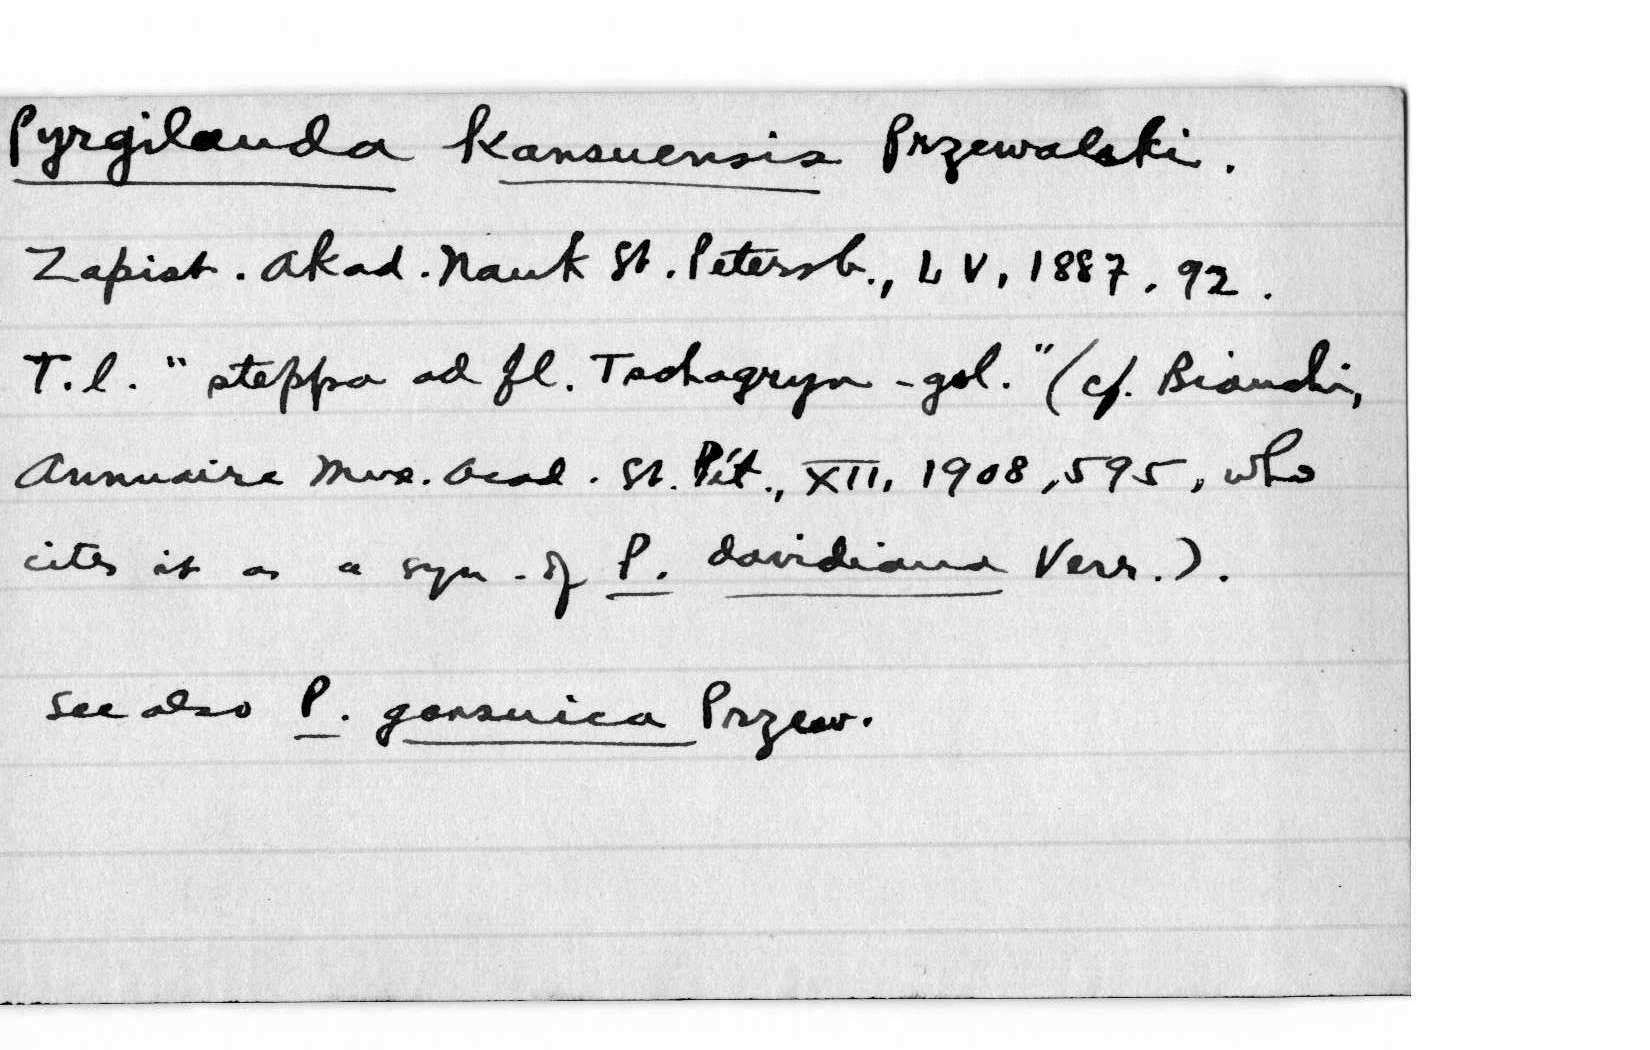 Pyrgilauda kansuensis Przewalski.
Zapist. Akad. Nauk St. Petersb., LV, 1887, 92.
T.l. "steppa ad fl. Tschagryn-gol." (cf. Bianchi,
Annuaire Mus. Acad. St. Pét., XII, 1908, 595, who
cites it as a syn. of P. davidiana Verr.).
See also P. gansuica Przew.